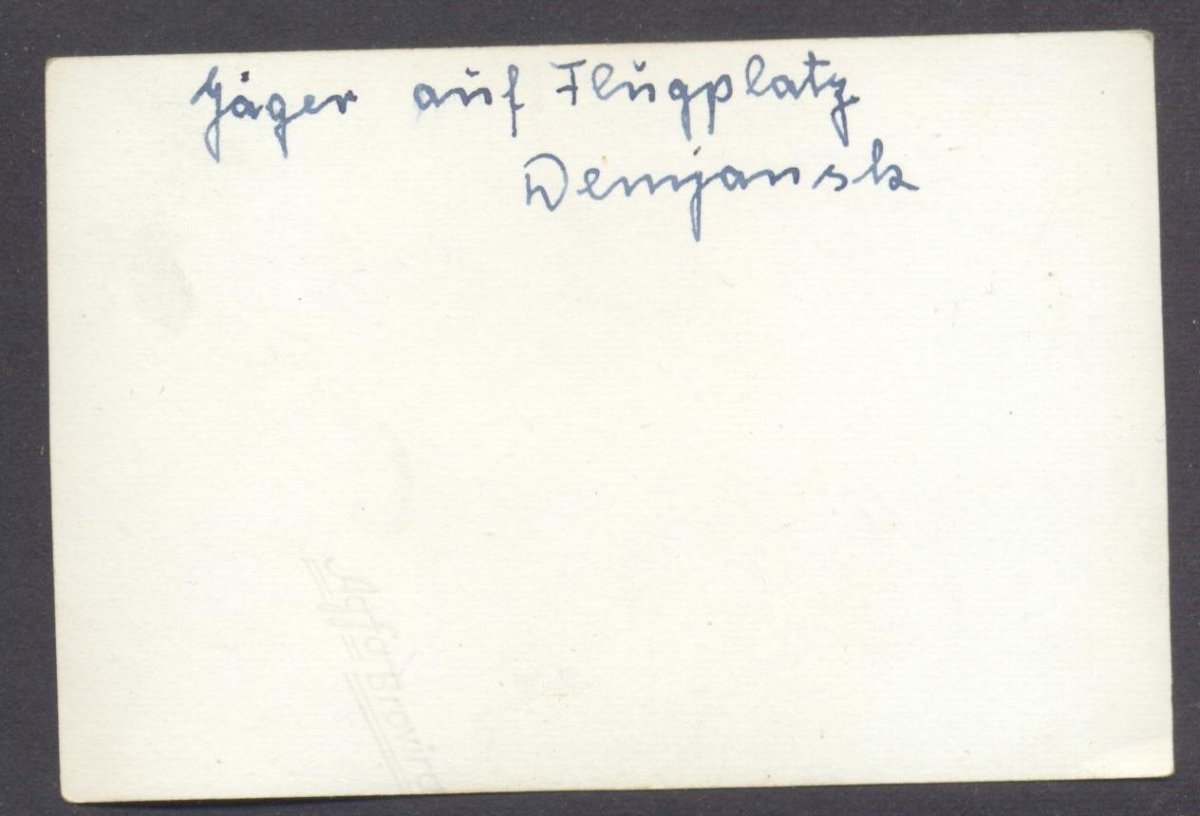 Jäger auf Flugplatz
Demjansk
Agfa Brovira